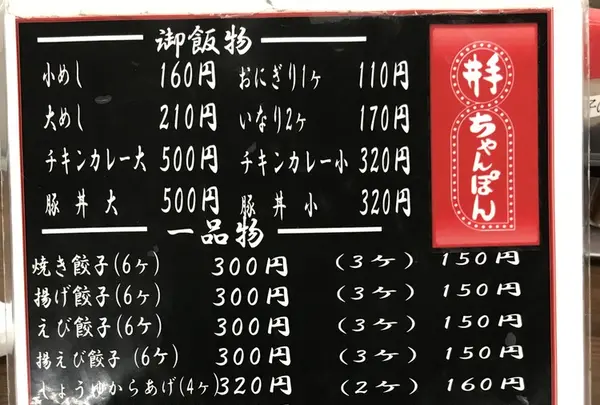 御飯物
小めし 160円 おにぎり1ヶ 110円
大めし 210円 いなり2ヶ 170円
チキンカレー大 500円 チキンカレー小 320円
豚丼大 500円 豚丼小 320円
一品物
焼き餃子(6ヶ) 300円 (3ヶ) 150円
揚げ餃子(6ヶ) 300円 (3ヶ) 150円
えび餃子(6ヶ) 300円 (3ヶ) 150円
揚えび餃子(6ヶ) 300円 (3ヶ) 150円
しょうゆからあげ(4ヶ) 320円 (2ヶ) 160円
井手ちゃんぽん